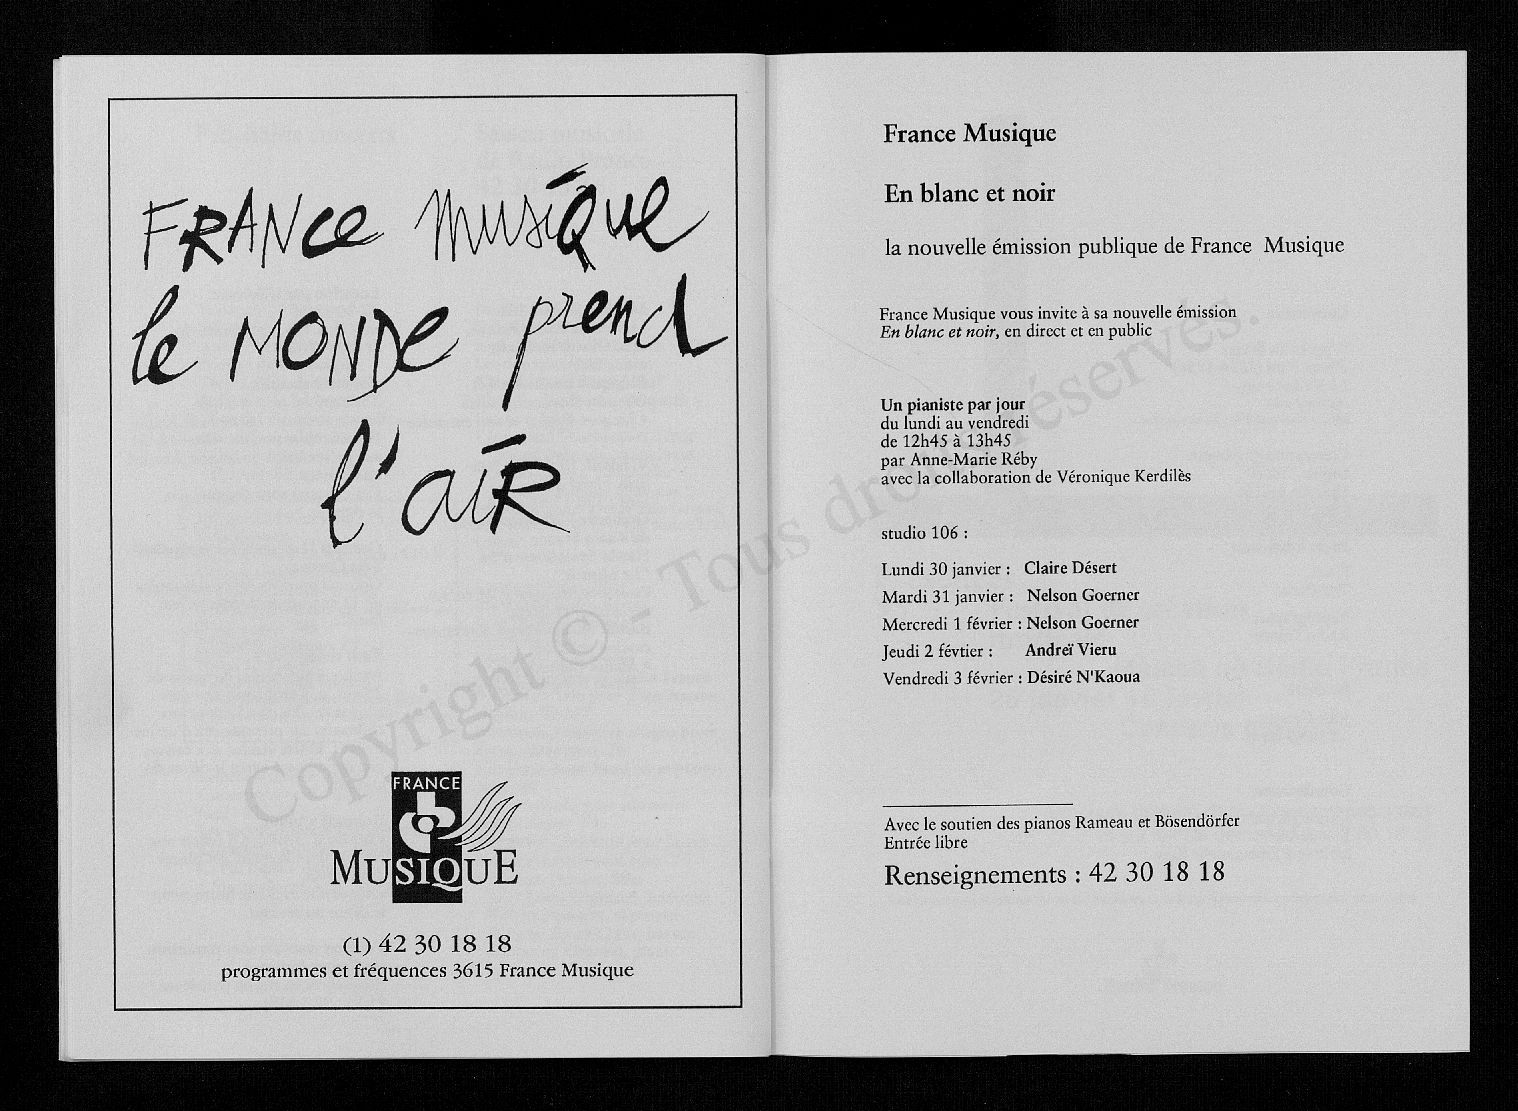 FRANCE musique
le MONDE prend
l'aIR
FRANCE
MUSIQUE
(1) 42 30 18 18
programmes et fréquences 3615 France Musique
France Musique
En blanc et noir
la nouvelle émission publique de France Musique
France Musique vous invite à sa nouvelle émission
En blanc et noir, en direct et en public
Un pianiste par jour
du lundi au vendredi
de 12h45 à 13h45
par Anne-Marie Réby
avec la collaboration de Véronique Kerdilès
studio 106 :
Lundi 30 janvier : Claire Désert
Mardi 31 janvier : Nelson Goerner
Mercredi 1 février : Nelson Goerner
Jeudi 2 févtier : Andreï Vieru
Vendredi 3 février : Désiré N'Kaoua
Avec le soutien des pianos Rameau et Bösendörfer
Entrée libre
Renseignements : 42 30 18 18
Copyright © - Tous droits réservés.